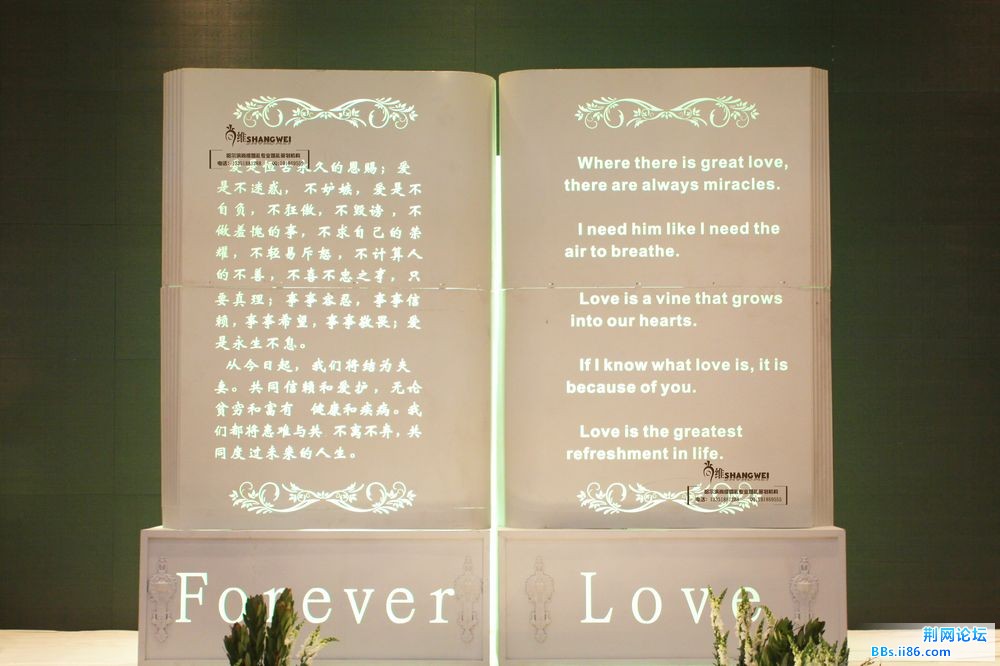 维SHANGWEI
爱是恒古永久的恩赐；爱
是不迷惑，不妒嫉，爱是不
自负，不狂傲，不毁谤，不
做羞愧的事，不求自己的荣
耀，不轻易斥怒，不计算人
的不善，不喜不忠之事，只
要真理；事事容忍，事事信
赖，事事希望，事事敬畏；爱
是永生不息。
从今日起，我们将结为夫
妻。共同信赖和爱护，无论
贫穷和富有 健康和疾病。我
们都将患难与共 不离不弃，共
同度过未来的人生。
Where there is great love,
there are always miracles.
I need him like I need the
air to breathe.
Love is a vine that grows
into our hearts.
If I know what love is, it is
because of you.
Love is the greatest
refreshment in life.
维SHANGWEI
Forever Love
荆网论坛
BBs.ii86.com